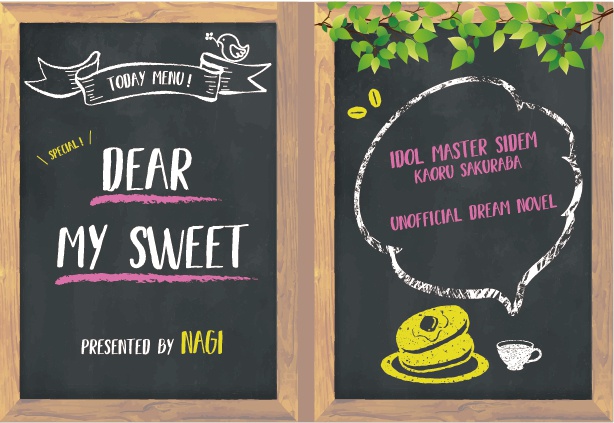 TODAY MENU!
SPECIAL!
DEAR
MY SWEET
PRESENTED BY NAGI
IDOL MASTER SIDEM
KAORU SAKURABA
UNOFFICIAL DREAM NOVEL